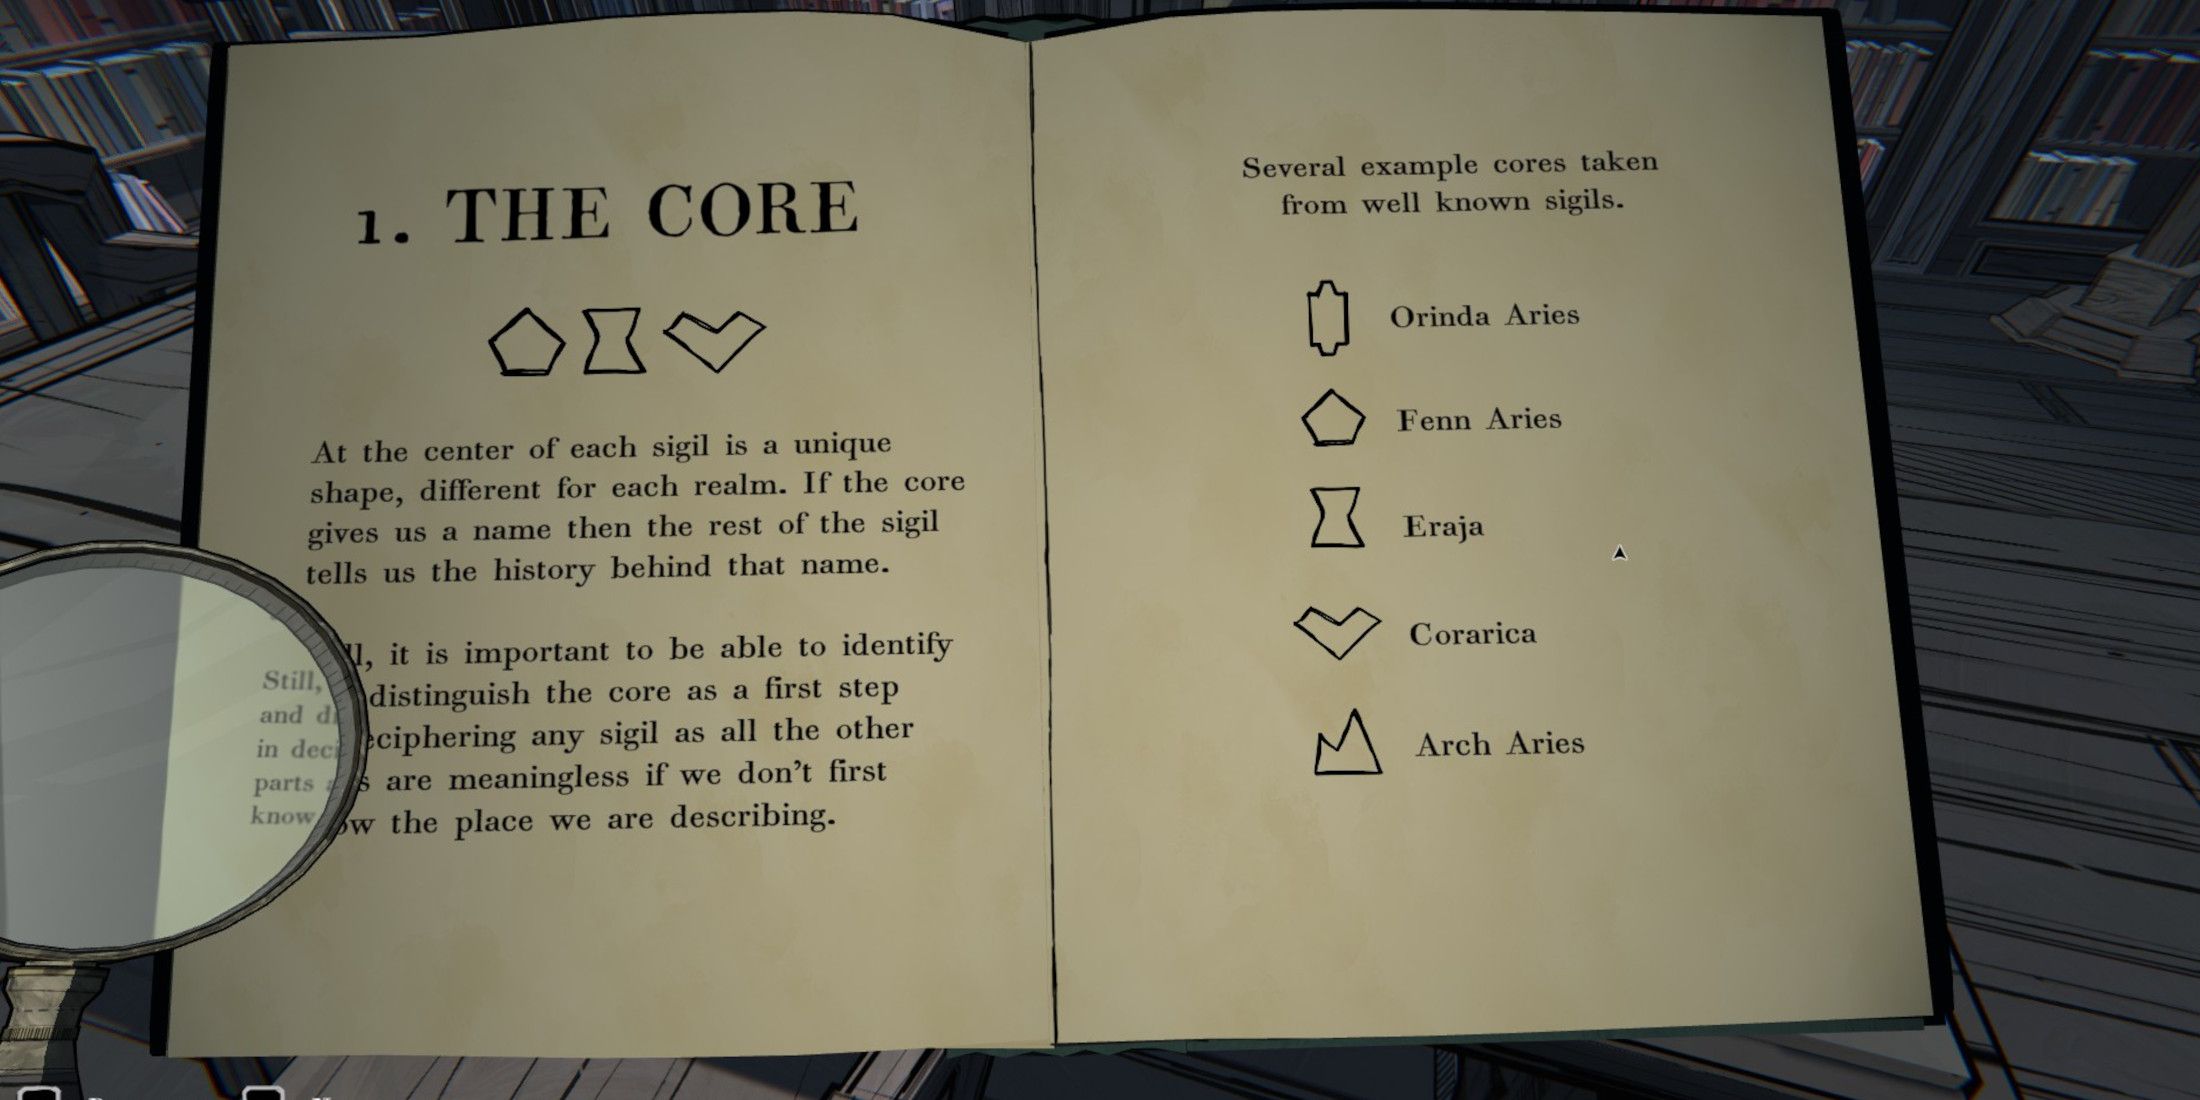 1. THE CORE
At the center of each sigil is a unique
shape, different for each realm. If the core
gives us a name then the rest of the sigil
tells us the history behind that name.
Still, it is important to be able to identify
and distinguish the core as a first step
in deciphering any sigil as all the other
parts are meaningless if we don't first
know the place we are describing.
Several example cores taken
from well known sigils.
Orinda Aries
Fenn Aries
Eraja
Corarica
Arch Aries